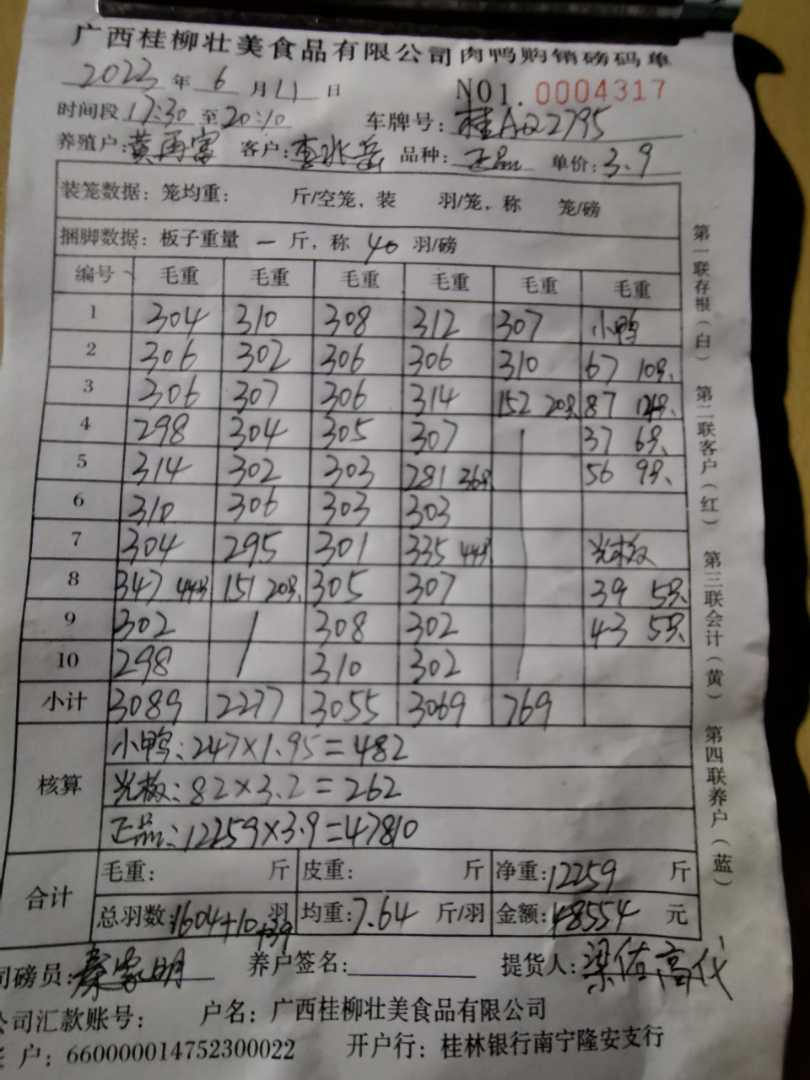 广西桂柳壮美食品有限公司肉鸭购销磅码单
2023年6月11日 NO1. 0004317
时间段17:30至20:10 车牌号:桂AQ2795
养殖户:黄再富 客户:李兆岳 品种:正品 单价:3.9
装笼数据:笼均重: 斤/空笼,装 羽/笼,称 笼/磅
捆脚数据:板子重量 一 斤,称 40 羽/磅
编号 毛重 毛重 毛重 毛重 毛重 毛重
1 304 310 308 312 307 小鸭
2 306 302 306 306 310 67 10只
3 306 307 306 314 152 20只 87 12只
4 298 304 305 307 37 6只
5 314 302 303 281 36只 56 9只
6 310 306 303 303
7 304 295 301 335 44只 光板
8 347 44只 151 20只 305 307 39 5只
9 302 308 302 43 5只
10 298 310 302
小计 3089 2277 3055 3069 769
核算
小鸭:247×1.95=482
光板:82×3.2=262
正品:12259×3.9=47810
合计
毛重: 斤 皮重: 斤 净重:12259 斤
总羽数:1604+10+39 羽 均重:7.64 斤/羽 金额:48554 元
司磅员:秦家明 养户签名: 提货人:梁佐高代
公司汇款账号: 户名:广西桂柳壮美食品有限公司
户:660000014752300022 开户行:桂林银行南宁隆安支行
第一联存根(白) 第二联客户(红) 第三联会计(黄) 第四联养户(蓝)